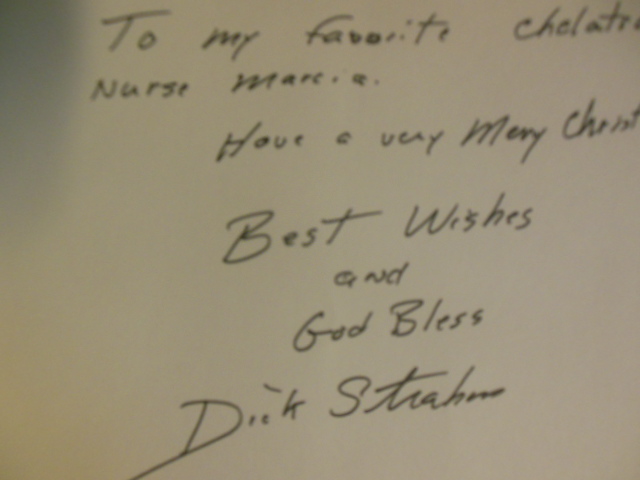 To my favorite chelatio
Nurse Marcia.
Have a very Merry Christ
Best Wishes
and
God Bless
Dick